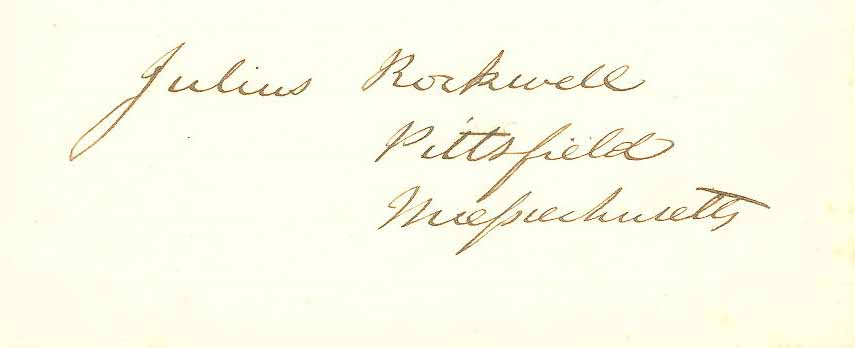 Julius Rockwell
Pittsfield
Massachusetts